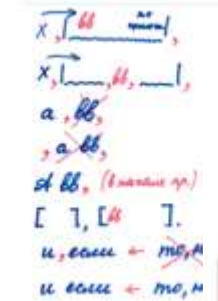 х, |вв ___|,
х, |___, вв, ___|,
а, вв,
, а вв,
А вв, (в начале пр.)
[ ], [вв ].
и, если ← то, н
и если ← то, н